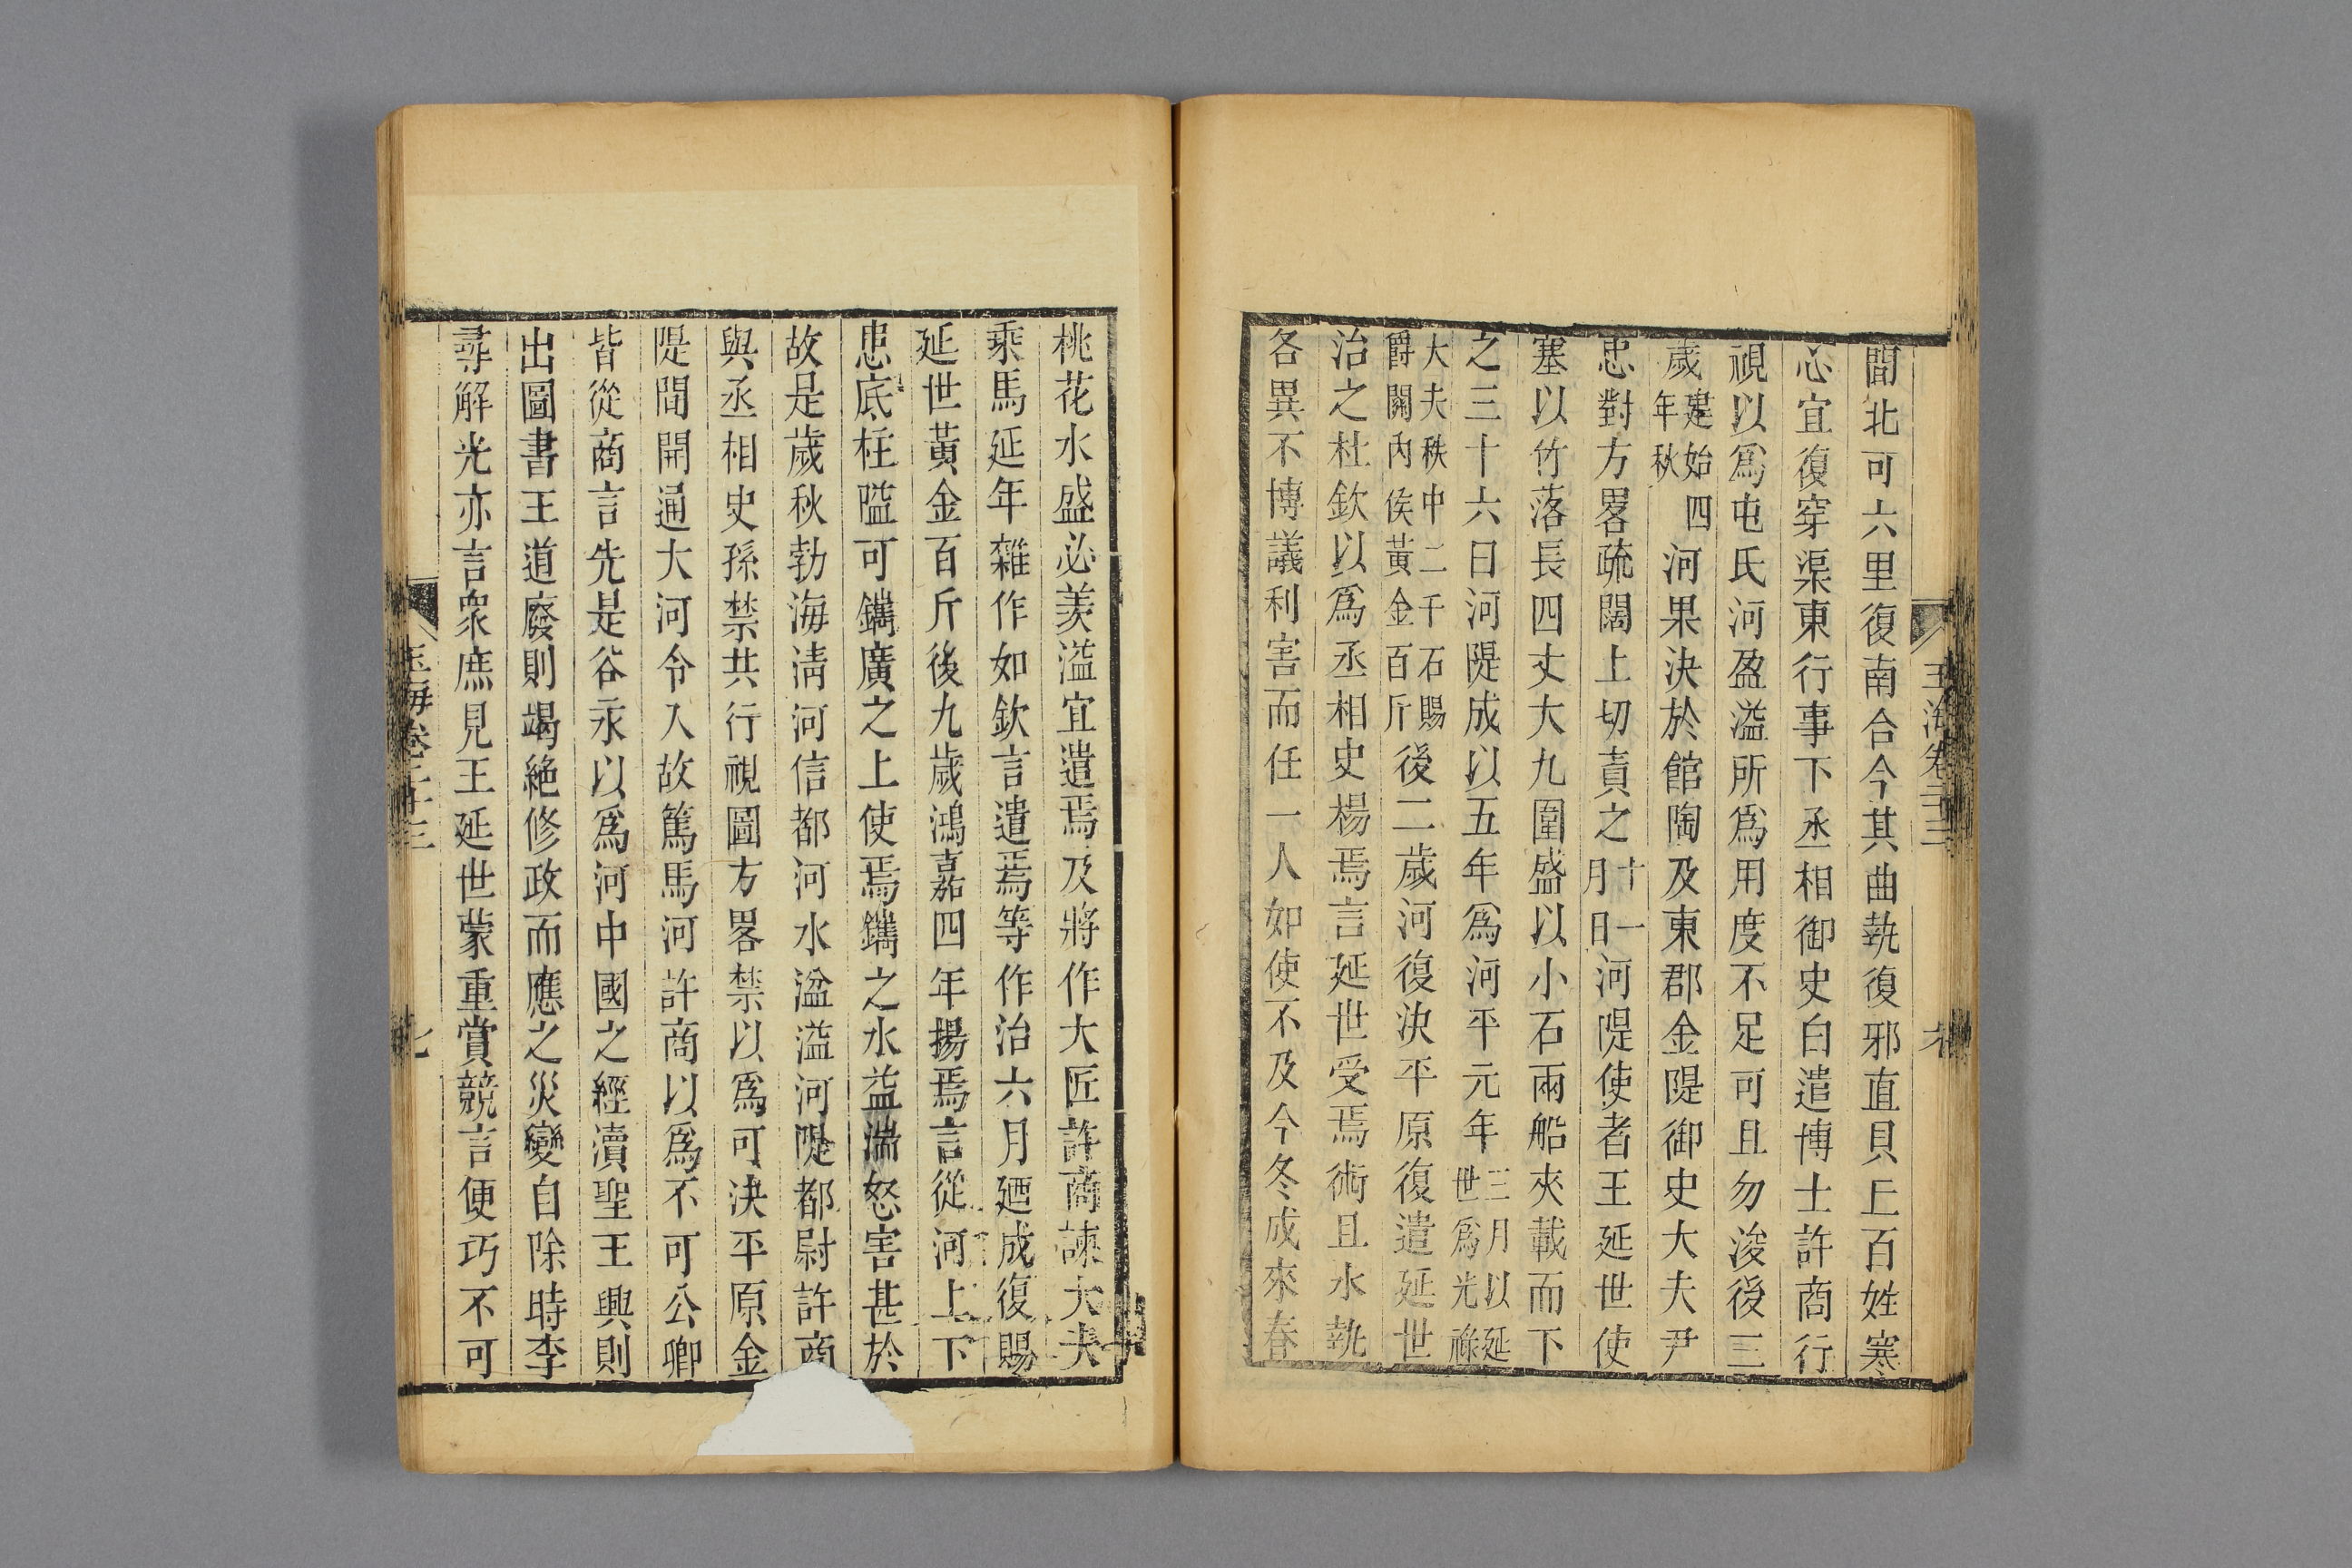 玉海卷二十三
間北可六里復南合今其曲埶復邪直貝丘百姓寒
心宜復穿渠東行事下丞相御史白遣博士許商行
視以爲屯氏河盈溢所爲用度不足可且勿浚後三
歲建始四年秋河果決於館陶及東郡金隄御史大夫尹
忠對方畧疏闊上切責之十一月日河隄使者王延世使
塞以竹落長四丈大九圍盛以小石兩船夾載而下
之三十六日河隄成以五年爲河平元年三月以延世爲光祿
大夫秩中二千石賜爵關內侯黃金百斤後二歲河復決平原復遣延世
治之杜欽以爲丞相史楊焉言延世受焉術且水埶
各異不博議利害而任一人如使不及今冬成來春
桃花水盛必羨溢宜遣焉及將作大匠許商諫大夫
乘馬延年雜作如欽言遣焉等作治六月廼成復賜
延世黃金百斤後九歲鴻嘉四年揚焉言從河上下
患底柱隘可鐫廣之上使焉鐫之水益湍怒害甚於
故是歲秋勃海淸河信都河水湓溢河隄都尉許商
與丞相史孫禁共行視圖方畧禁以爲可決平原金
隄間開通大河令入故篤馬河許商以爲不可公卿
皆從商言先是谷永以爲河中國之經瀆聖王興則
出圖書王道廢則竭絶修政而應之災變自除時李
尋解光亦言衆庶見王延世蒙重賞競言便巧不可
玉海卷二十三
七